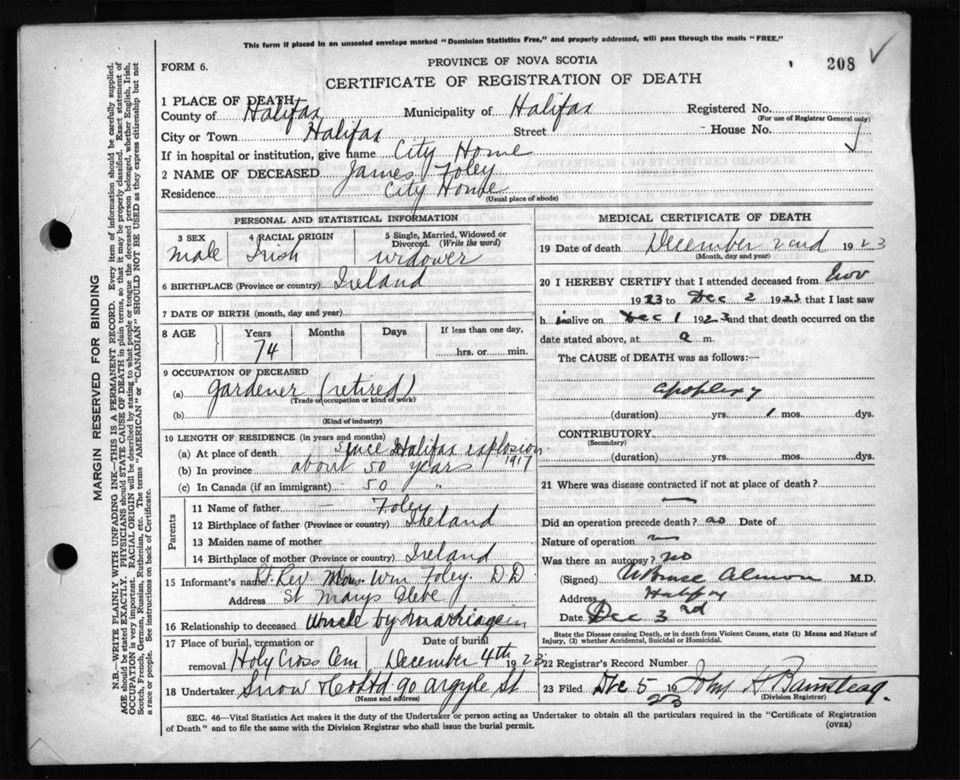 This form if placed in an unsealed envelope marked "Dominion Statistics Free," and properly addressed, will pass through the mails "FREE."
FORM 6.
PROVINCE OF NOVA SCOTIA
208
CERTIFICATE OF REGISTRATION OF DEATH
MARGIN RESERVED FOR BINDING
N.B.—WRITE PLAINLY WITH UNFADING INK—THIS IS A PERMANENT RECORD. Every item of information should be carefully supplied.
AGE should be stated EXACTLY. PHYSICIANS should STATE CAUSE OF DEATH in plain terms, so that it may be properly classified. Exact statement of
OCCUPATION is very important. RACIAL ORIGIN will be described by stating to what people or tongue the deceased person belonged, whether English, Irish,
Scotch, French, German, Russian, Ruthenian, etc. The terms "AMERICAN" or "CANADIAN" SHOULD NOT BE USED as they express citizenship but not
a race or people. See instructions on back of Certificate.
1 PLACE OF DEATH
County of Halifax Municipality of Halifax Registered No.
(For use of Registrar General only)
City or Town Halifax Street House No.
If in hospital or institution, give name City Home
2 NAME OF DECEASED James Foley
Residence City Home
(Usual place of abode)
PERSONAL AND STATISTICAL INFORMATION
3 SEX 4 RACIAL ORIGIN 5 Single, Married, Widowed or
Divorced. (Write the word)
male Irish widower
6 BIRTHPLACE (Province or country) Ireland
7 DATE OF BIRTH (month, day and year)
8 AGE Years Months Days If less than one day,
74 hrs. or min.
9 OCCUPATION OF DECEASED
(a) gardener (retired)
(Trade or occupation or kind of work)
(b)
(Kind of industry)
10 LENGTH OF RESIDENCE (in years and months)
(a) At place of death since Halifax explosion
1917
(b) In province about 50 years
(c) In Canada (if an immigrant) 50 "
Parents
11 Name of father — Foley
12 Birthplace of father (Province or country) Ireland
13 Maiden name of mother
14 Birthplace of mother (Province or country) Ireland
15 Informant's name Rt. Rev. Mons. Wm Foley. D.D
Address St Marys Glebe
16 Relationship to deceased Uncle by marriage
17 Place of burial, cremation or Date of burial
removal Holy Cross Cem, December 4th 1923
18 Undertaker Snow & Co Ltd 90 Argyle St
(Name and address)
MEDICAL CERTIFICATE OF DEATH
19 Date of death December 2nd 1923
(Month, day and year)
20 I HEREBY CERTIFY that I attended deceased from Nov
1923 to Dec 2 1923 that I last saw
h im alive on Dec 1 1923 and that death occurred on the
date stated above, at a m.
The CAUSE of DEATH was as follows:
apoplexy
(duration) yrs. 1 mos. dys.
CONTRIBUTORY
(Secondary)
(duration) yrs. mos. dys.
21 Where was disease contracted if not at place of death?
Did an operation precede death? no Date of
Nature of operation
Was there an autopsy? no
(Signed) W Bruce Almon M.D.
Address Halifax
Date Dec 3rd
State the Disease causing Death, or in death from Violent Causes, state (1) Means and Nature of
Injury, (2) whether Accidental, Suicidal or Homicidal.
22 Registrar's Record Number
23 Filed Dec 5 19 23 John H Barnstead
(Division Registrar)
SEC. 46—Vital Statistics Act makes it the duty of the Undertaker or person acting as Undertaker to obtain all the particulars required in the "Certificate of Registration
of Death" and to file the same with the Division Registrar who shall issue the burial permit.
(OVER)